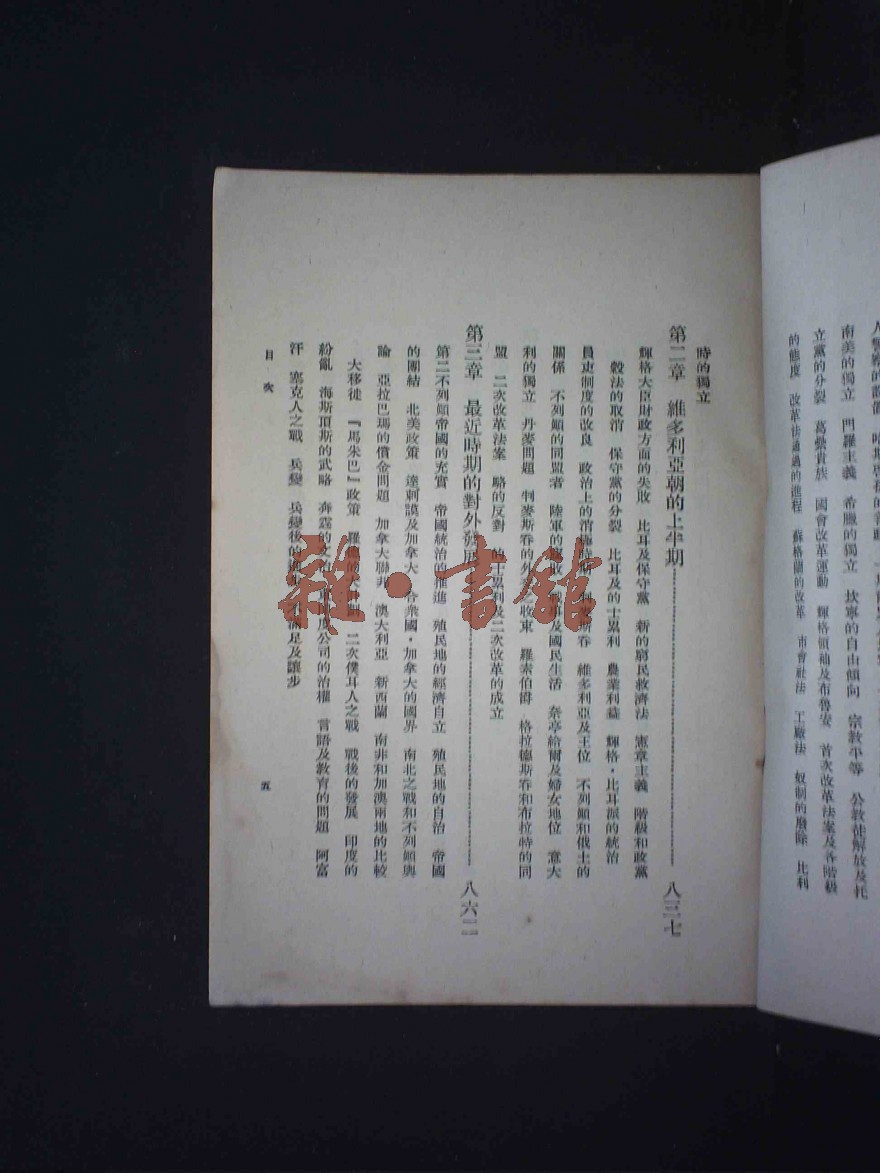 南美的獨立　門羅主義　希臘的獨立　坎寧的自由傾向　宗教平等　公教徒解放及托
立黨的分裂　葛壘貴族　國會改革運動　輝格領袖及布魯安　首次改革法案及各階級
的態度　改革法通過的進程　蘇格蘭的改革　市會社法　工廠法　奴制的廢除　比利
時的獨立
第二章　維多利亞朝的上半期 八三七
輝格大臣財政方面的失敗　比耳及保守黨　新的窮民救濟法　憲章主義　階級和政黨
穀法的取消　保守黨的分裂　比耳及的士累利　農業利益　輝格・比耳派的統治
員吏制度的改良　政治上的消 麥斯春　維多利亞及王位　不列顛和俄土的
關係　不列顛的同盟者　陸軍的 及國民生活　奈亭給爾及婦女地位　意大
利的獨立　丹麥問題　判麥斯春的外 之收束　羅素伯爵　格拉德斯吞和布拉特的同
盟　二次改革法案　駱的反對　的士累利及二次改革的成立
第三章　最近時期的對外發展 八六二
第二不列顛帝國的充實　帝國統治的推進　殖民地的經濟自立　殖民地的自治　帝國
的團結　北美政策　達刺謨及加拿大　合衆國・加拿大的國界　南北之戰和不列顛輿
論　亞拉巴瑪的償金問題　加拿大聯邦　澳大利亞　新西蘭　南非和加澳兩地的比較
大移徙　『馬朱巴』政策　羅德 二次僕耳人之戰　戰後的發展　印度的
紛亂　海斯頂斯的武略　奔霆的文治 度公司的治權　言語及教育的問題　阿富
汗　塞克人之戰　兵變　兵變後的 滿足及讓步
目次
五
雜・書館